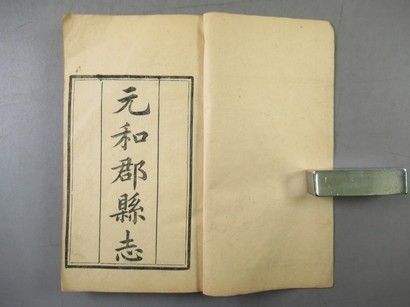 元和郡縣志